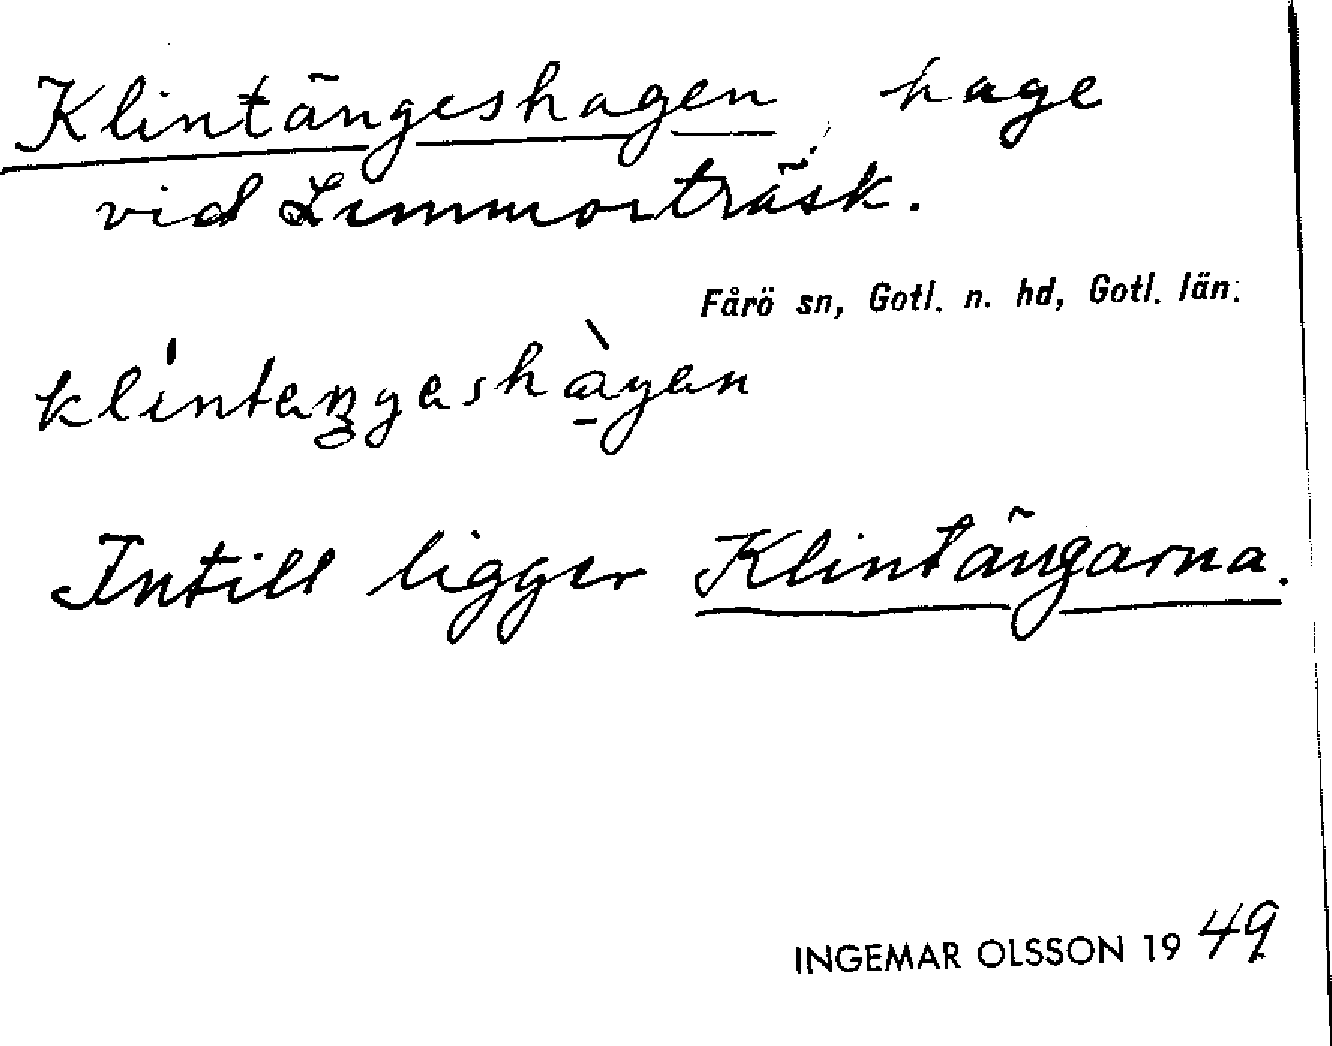 Klintängeshagen, hage
vid Limmorträsk.
Fårö sn, Gotl. n. hd, Gotl. län.
Intill ligger Klintängarna.
INGEMAR OLSSON 1949